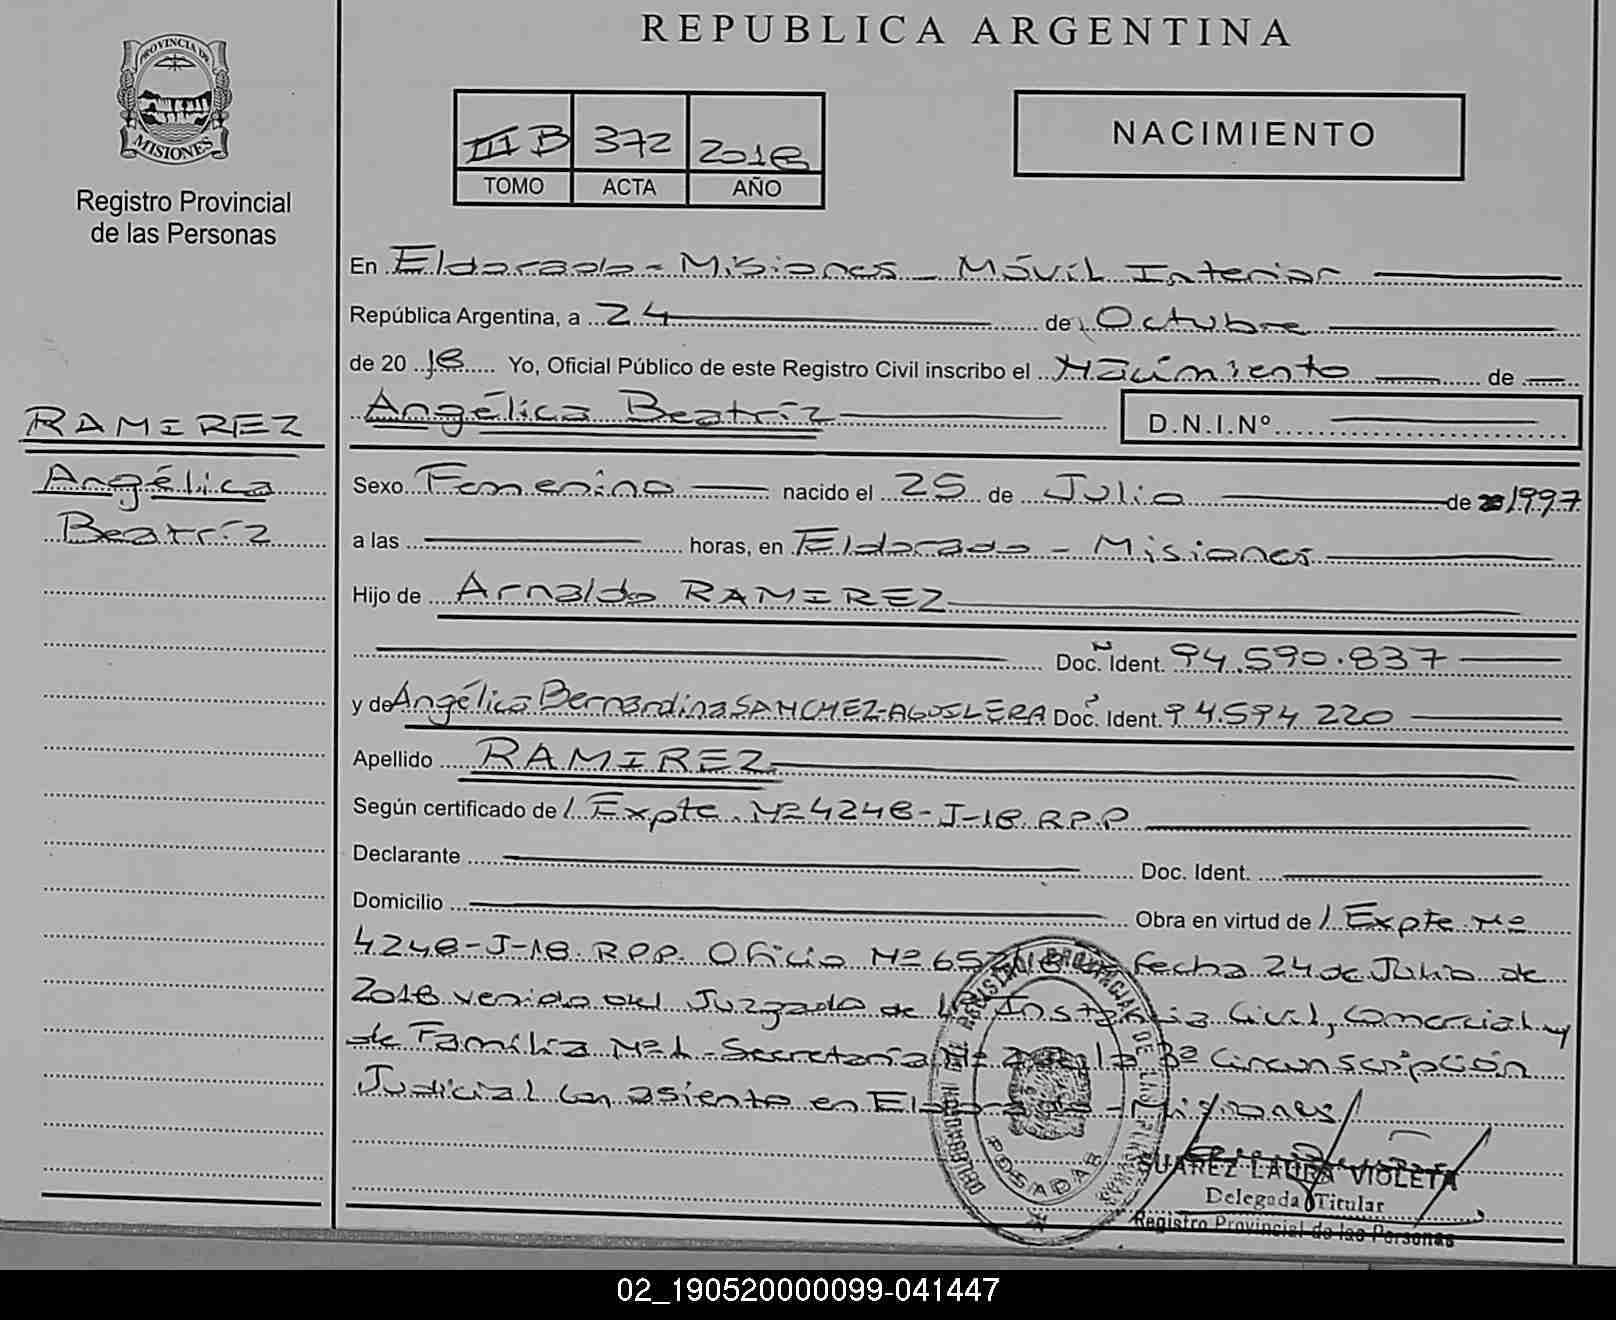 REPUBLICA ARGENTINA
PROVINCIA DE
MISIONES
Registro Provincial
de las Personas
III B 372 2018
TOMO ACTA AÑO
NACIMIENTO
En Eldorado - Misiones - Móvil Interior
República Argentina, a 24 de Octubre
de 2018 Yo, Oficial Público de este Registro Civil inscribo el Nacimiento de
Angélica Beatríz
D.N.I.Nº
RAMIREZ
Angélica
Beatríz
Sexo Femenino nacido el 25 de Julio de 1997
a las horas, en Eldorado - Misiones
Hijo de Arnaldo RAMIREZ
Doc. Ident. 94.590.837
y de Angélica Bernardina SANCHEZ AGUILERA Doc. Ident. 94.594 220
Apellido RAMIREZ
Según certificado de / Expte. Nº 4248-J-18 R.P.P
Declarante Doc. Ident.
Domicilio Obra en virtud de / Expte Nº
4248-J-18. R.P.P. Oficio Nº fecha 24 de Julio de
2018 venido del Juzgado de Instancia Civil, Comercial y
de Familia Nº 1 - Secretaría Nº 2 de la 3º Circunscripción
Judicial con asiento en Eldorado - Misiones
REGISTRO PROVINCIAL DE LAS PERSONAS
POSADAS
SUAREZ LAURA VIOLETA
Delegada Titular
Registro Provincial de las Personas
02_190520000099-041447